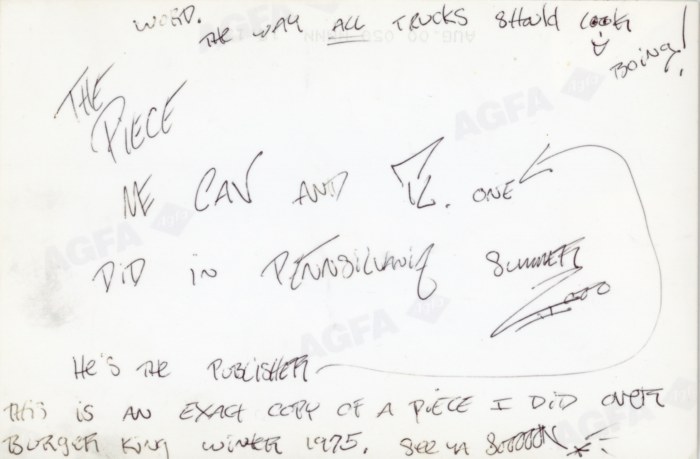 WORD. THE WAY ALL TRUCKS SHOULD LOOK
BOING!
THE
PIECE
ME CAV AND T.K. ONE
DID IN PENNSILVANIA SUMMER
2000
HE'S THE PUBLISHER
THIS IS AN EXACT COPY OF A PIECE I DID OVER
BURGER KING WINTER 1975. SEE YA SOOOON
AGFA
AGFA
AGFA
AGFA